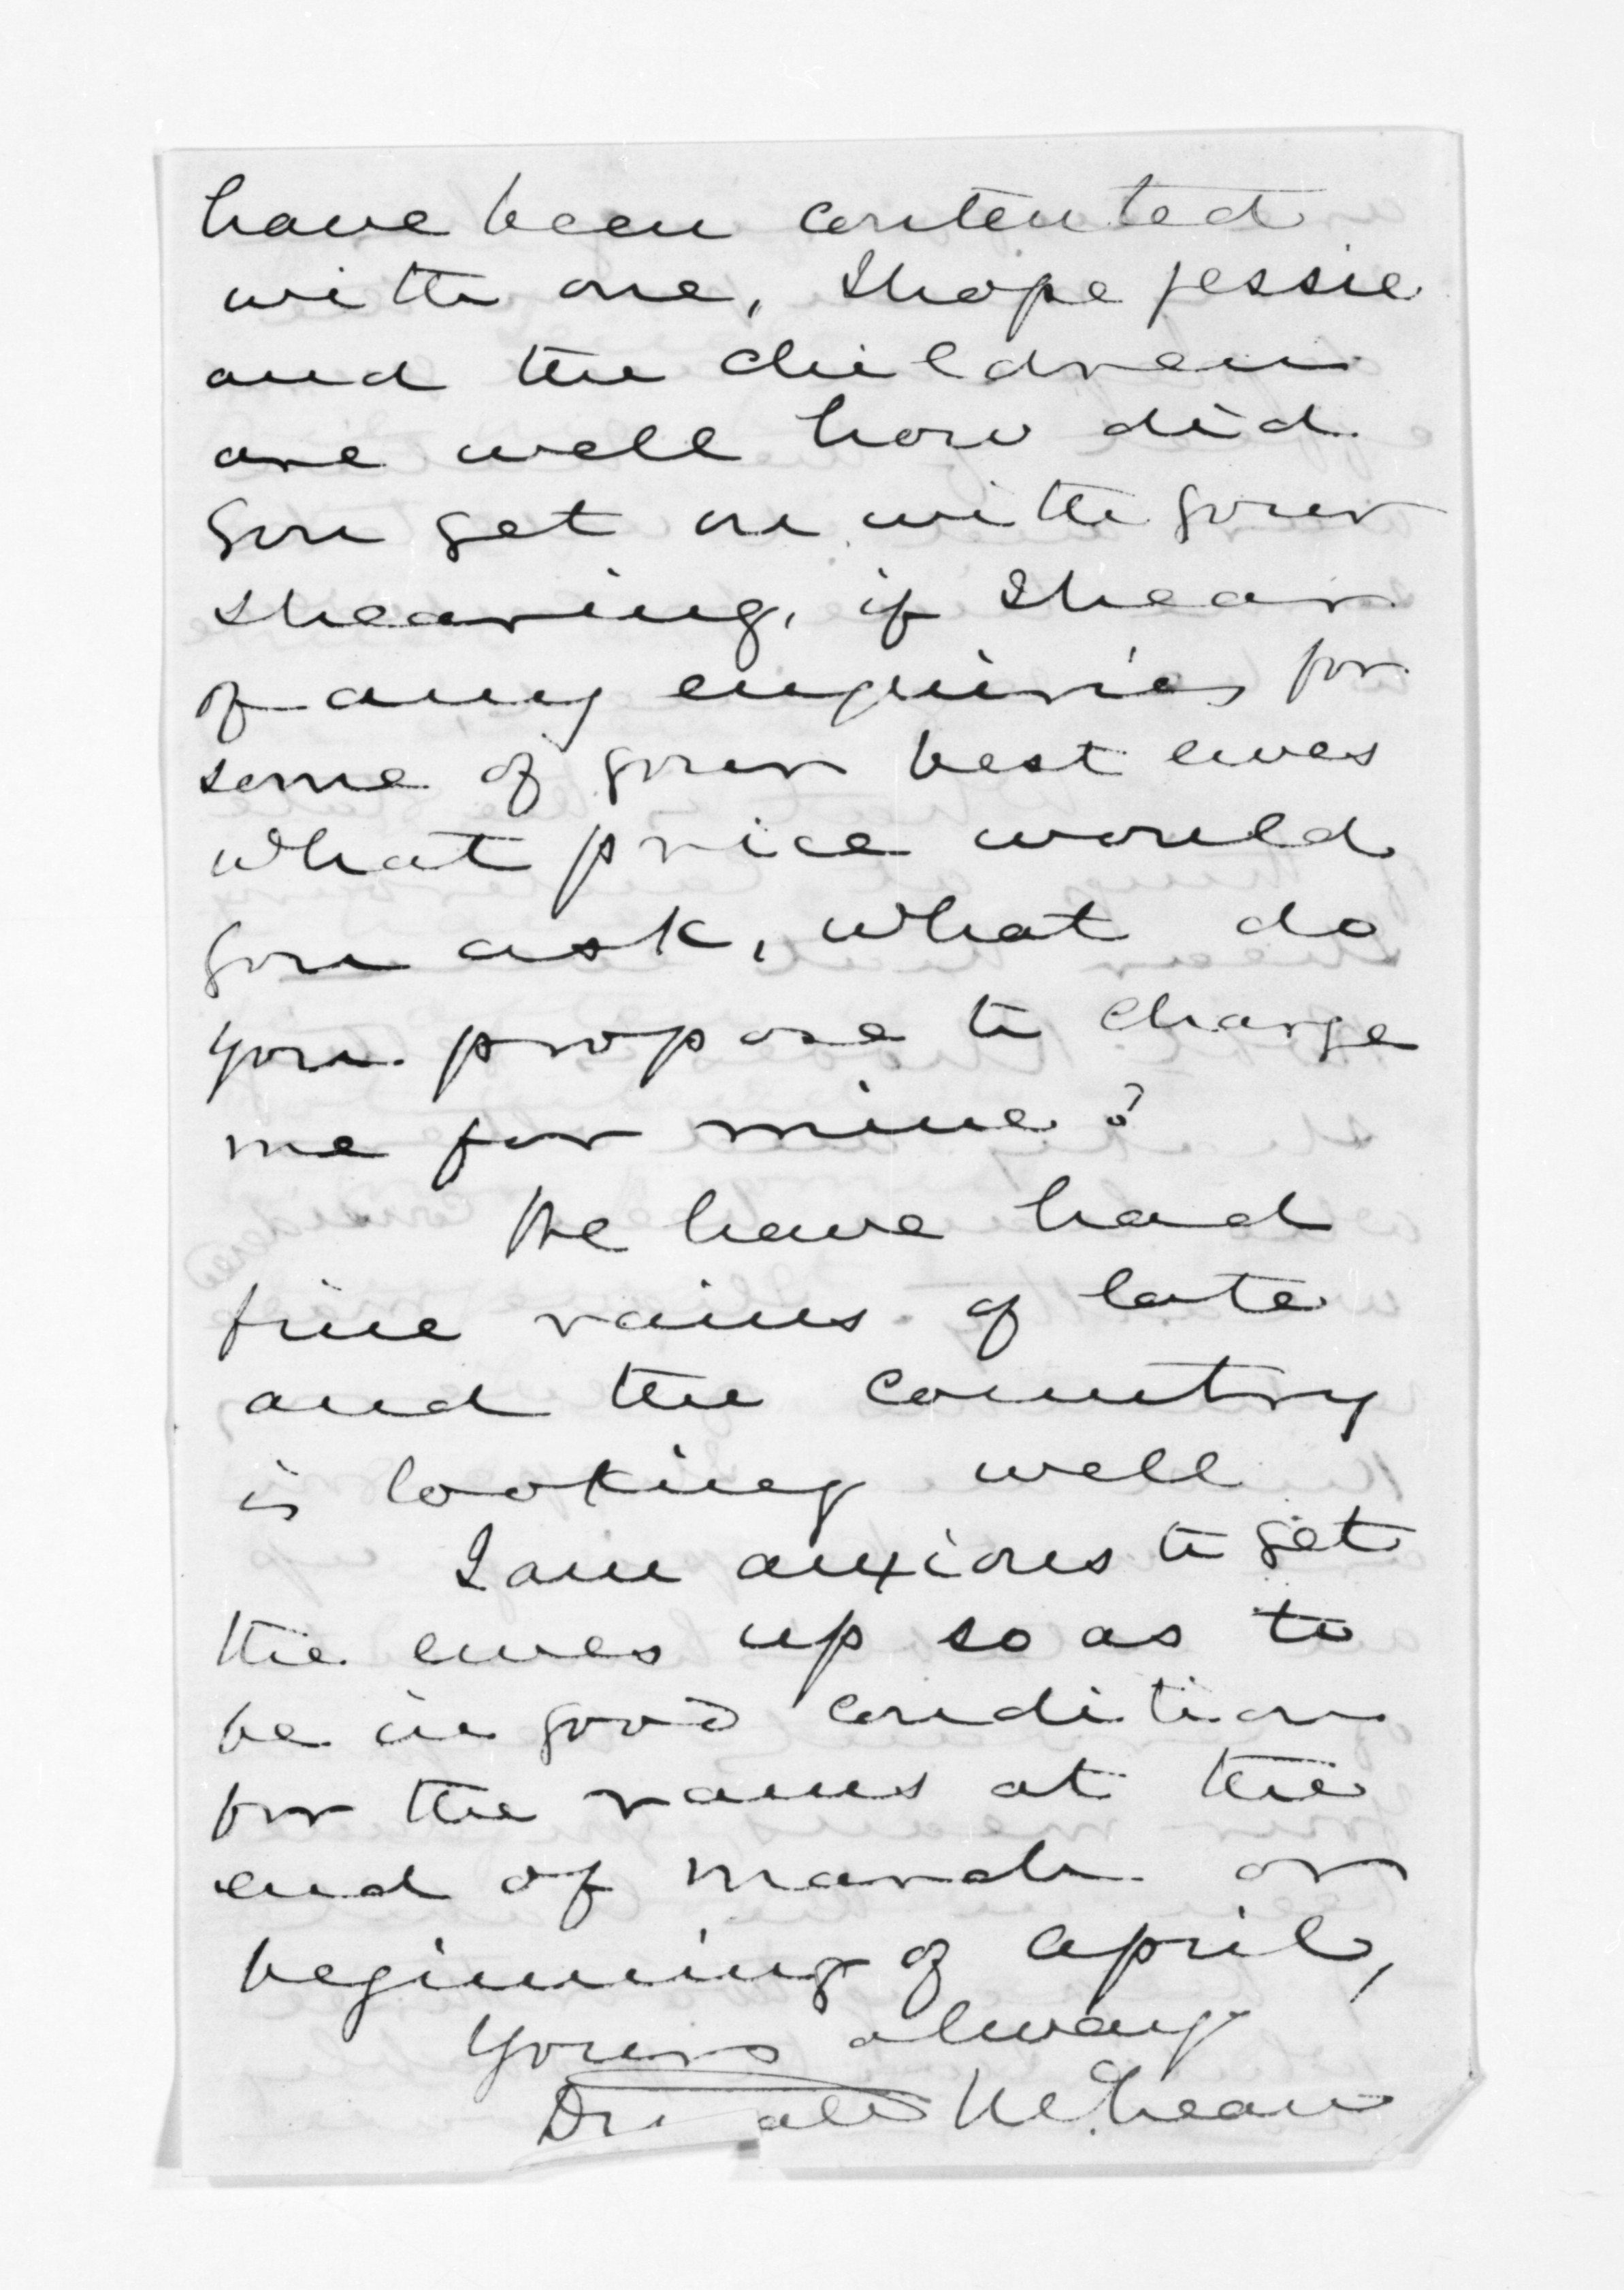 have been contented
with one, I hope Jessie
and the children
are well how did
you get on with your
shearing, if I hear
of any enquiries for
some of your best ewes
what price would
you ask, what do
you propose to charge
me for mine?
We have had
fine rains of late
and the country
is looking well
I am anxious to get
the ewes up so as to
be in good condition
for the rams at the
end of March or
beginning of April,
Yours always
McLean